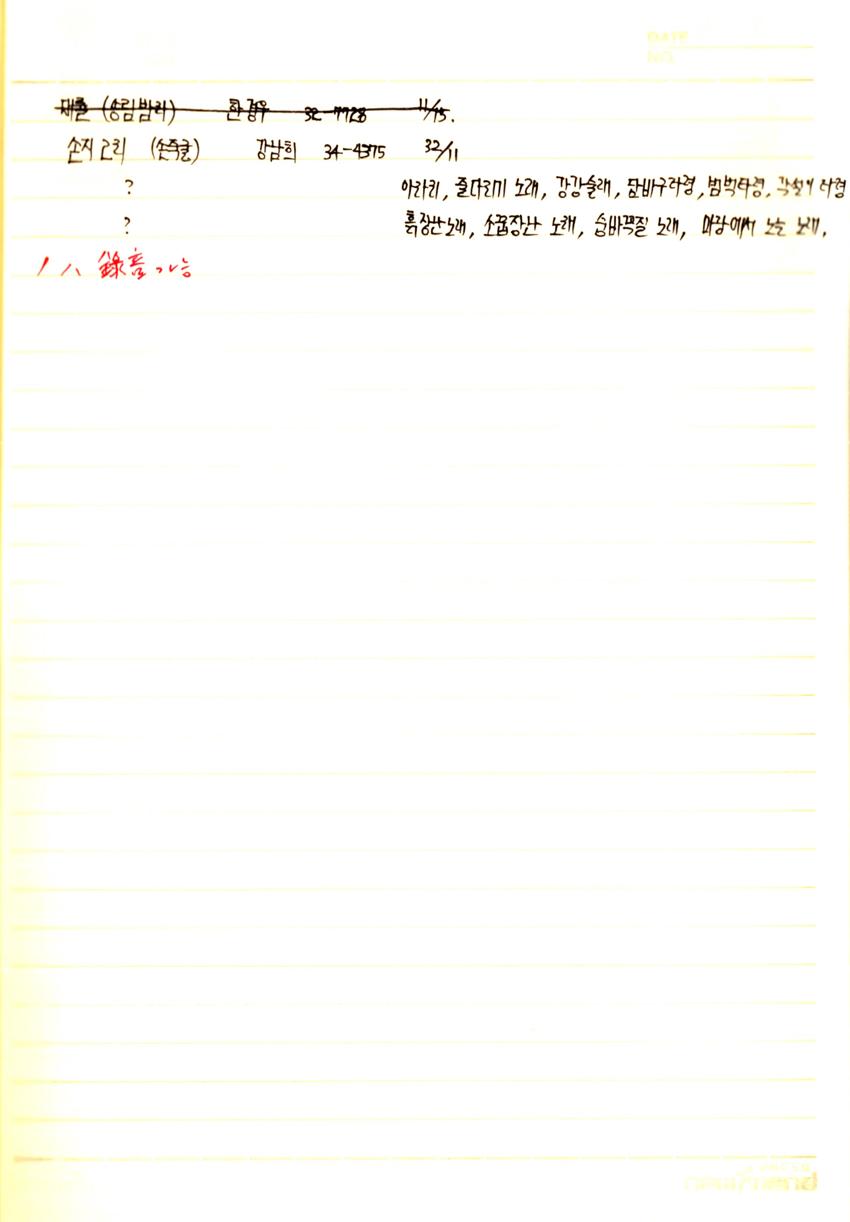 대촌 (송림밤리) 한경우 32-7728 11/15.
손지고리 (손죽골) 강남희 34-4375 32/11
? 아라리, 줄다리기 노래, 강강술래, 담바구타령, 범벅타령, 각설이 타령
? 흙장난노래, 소꿉장난 노래, 숨바꼭질 노래, 마당에서 노는 노래.
錄音 가능